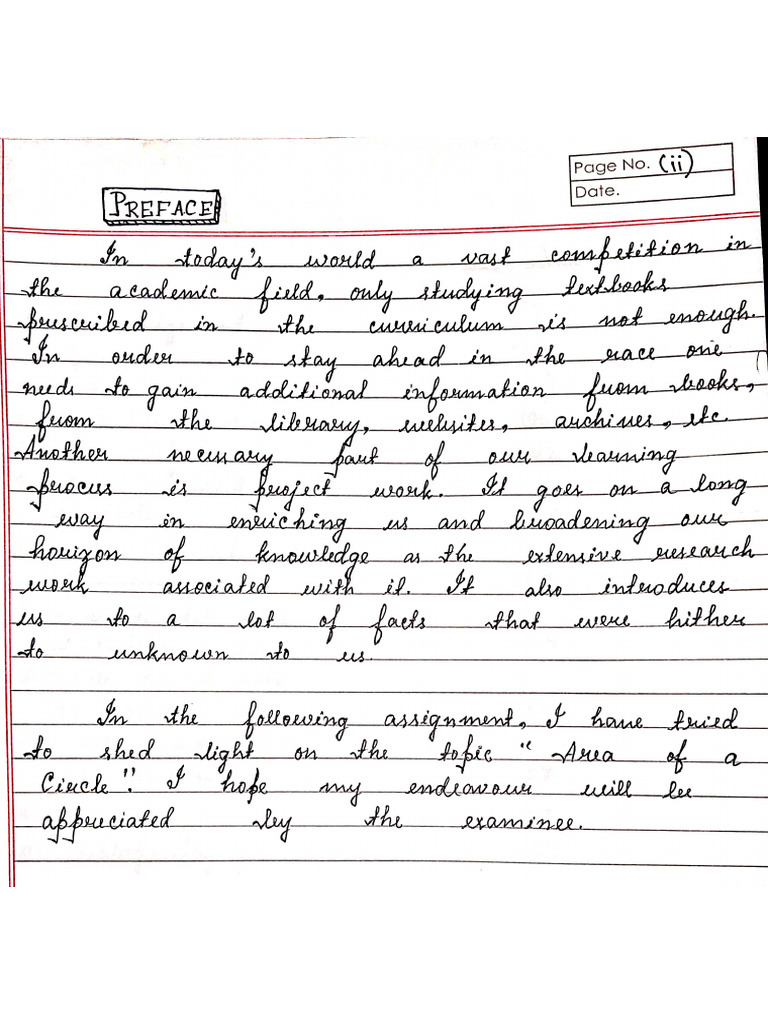 Page No. (ii)
Date.
PREFACE
In today's world a vast competition in
the academic field, only studying textbooks
prescribed in the curriculum is not enough.
In order to stay ahead in the race one
needs to gain additional information from books,
from the library, websites, archives, etc.
Another necessary part of our learning
process is project work. It goes on a long
way in enriching us and broadening our
horizon of knowledge as the extensive research
work associated with it. It also introduces
us to a lot of facts that were hither
to unknown to us.
In the following assignment, I have tried
to shed light on the topic "Area of a
Circle". I hope my endeavour will be
appreciated by the examinee.